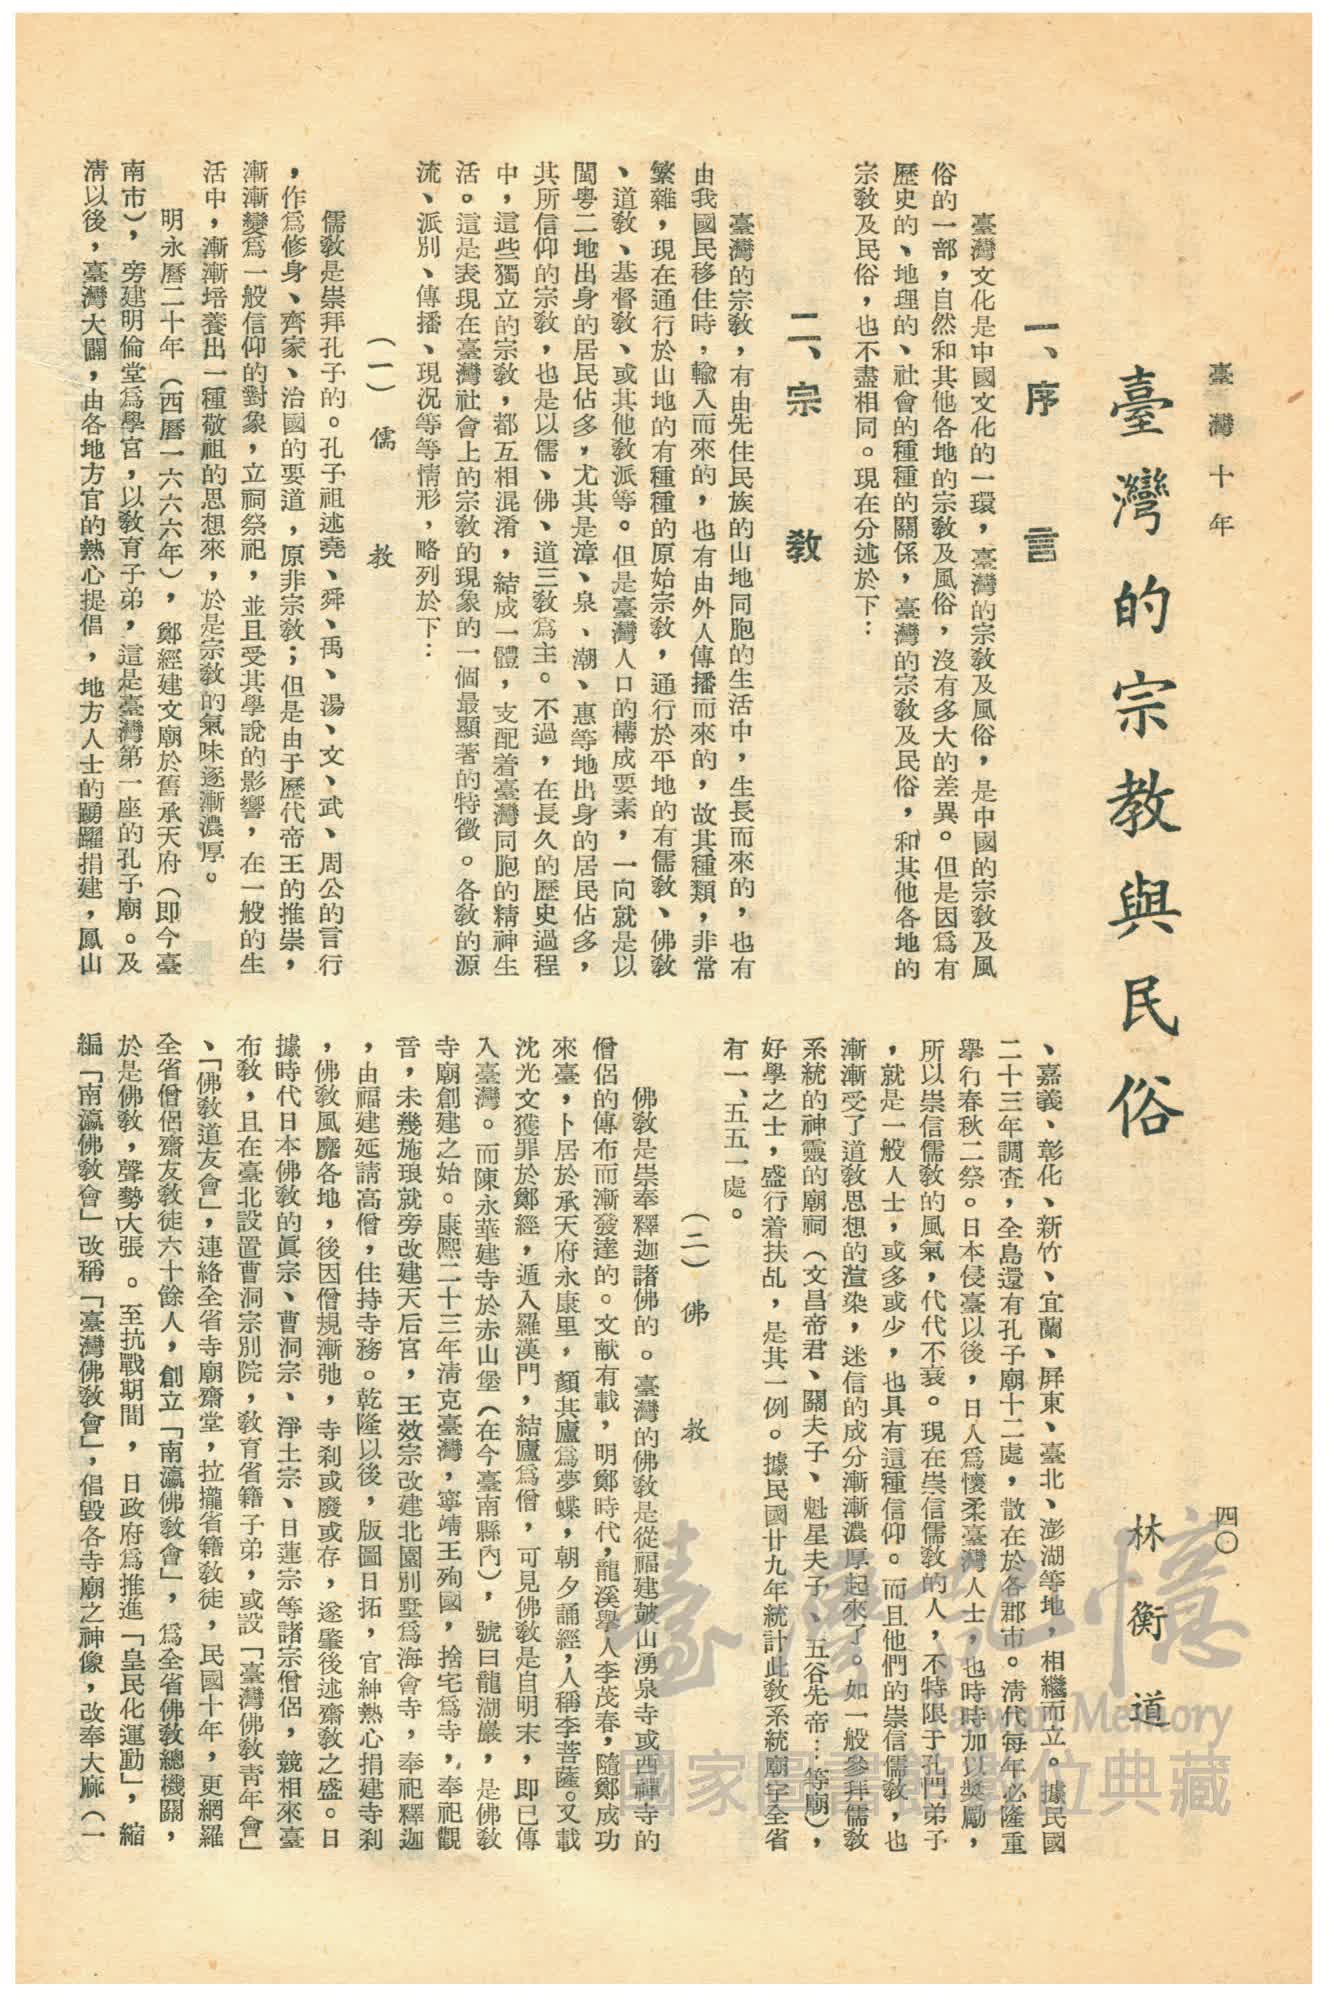 臺灣十年
四〇
臺灣的宗教與民俗
林衡道
一、序言
臺灣文化是中國文化的一環，臺灣的宗教及風俗，是中國的宗教及風
俗的一部，自然和其他各地的宗教及風俗，沒有多大的差異。但是因爲有
歷史的、地理的、社會的種種的關係，臺灣的宗教及民俗，和其他各地的
宗教及民俗，也不盡相同。現在分述於下：
二、宗教
臺灣的宗教，有由先住民族的山地同胞的生活中，生長而來的，也有
由我國民移住時，輸入而來的，也有由外人傳播而來的，故其種類，非常
繁雜，現在通行於山地的有種種的原始宗教，通行於平地的有儒教、佛教
、道教、基督教、或其他教派等。但是臺灣人口的構成要素，一向就是以
閩粵二地出身的居民佔多，尤其是漳、泉、潮、惠等地出身的居民佔多，
其所信仰的宗教，也是以儒、佛、道三教爲主。不過，在長久的歷史過程
中，這些獨立的宗教，都互相混淆，結成一體，支配着臺灣同胞的精神生
活。這是表現在臺灣社會上的宗教的現象的一個最顯著的特徵。各教的源
流、派別、傳播、現況等等情形，略列於下：
（一）儒教
儒教是崇拜孔子的。孔子祖述堯、舜、禹、湯、文、武、周公的言行
，作爲修身、齊家、治國的要道，原非宗教；但是由于歷代帝王的推崇，
漸漸變爲一般信仰的對象，立祠祭祀，並且受其學說的影響，在一般的生
活中，漸漸培養出一種敬祖的思想來，於是宗教的氣味逐漸濃厚。
明永曆二十年（西曆一六六六年），鄭經建文廟於舊承天府（即今臺
南市），旁建明倫堂爲學宮，以教育子弟，這是臺灣第一座的孔子廟。及
淸以後，臺灣大闢，由各地方官的熱心提倡，地方人士的踴躍捐建，鳳山
、嘉義、彰化、新竹、宜蘭、屏東、臺北、澎湖等地，相繼而立。據民國
二十三年調查，全島還有孔子廟十二處，散在於各郡市。淸代每年必隆重
舉行春秋二祭。日本侵臺以後，日人爲懷柔臺灣人士，也時時加以獎勵，
所以崇信儒教的風氣，代代不衰。現在崇信儒教的人，不特限于孔門弟子
，就是一般人士，或多或少，也具有這種信仰。而且他們的崇信儒教，也
漸漸受了道教思想的渲染，迷信的成分漸漸濃厚起來了。如一般參拜儒教
系統的神靈的廟祠（文昌帝君、關夫子、魁星夫子、五谷先帝…等廟），
好學之士，盛行着扶乩，是其一例。據民國廿九年統計此教系統廟宇全省
有一、五五一處。
（二）佛教
佛教是崇奉釋迦諸佛的。臺灣的佛教是從福建鼓山湧泉寺或西禪寺的
僧侶的傳布而漸發達的。文献有載，明鄭時代，龍溪舉人李茂春，隨鄭成功
來臺，卜居於承天府永康里，顏其廬爲夢蝶，朝夕誦經，人稱李菩薩。又載
沈光文獲罪於鄭經，遁入羅漢門，結廬爲僧，可見佛教是自明末，即已傳
入臺灣。而陳永華建寺於赤山堡（在今臺南縣內），號曰龍湖巖，是佛教
寺廟創建之始。康熙二十三年淸克臺灣，寧靖王殉國，捨宅爲寺，奉祀觀
音，未幾施琅就旁改建天后宮，王效宗改建北園別墅爲海會寺，奉祀釋迦
，由福建延請高僧，住持寺務。乾隆以後，版圖日拓，官紳熱心捐建寺刹
，佛教風靡各地，後因僧規漸弛，寺刹或廢或存，遂肇後述齋教之盛。日
據時代日本佛教的眞宗、曹洞宗、淨土宗、日蓮宗等諸宗僧侶，競相來臺
布教，且在臺北設置曹洞宗別院，教育省籍子弟，或設「臺灣佛教靑年會」
、「佛教道友會」，連絡全省寺廟齋堂，拉攏省籍教徒，民國十年，更網羅
全省僧侶齋友教徒六十餘人，創立「南瀛佛教會」，爲全省佛教總機關，
於是佛教，聲勢大張。至抗戰期間，日政府爲推進「皇民化運動」，縮
編「南瀛佛教會」改稱「臺灣佛教會」，倡毀各寺廟之神像，改奉大麻（一
臺灣記憶
Taiwan Memory
國家圖書館數位典藏